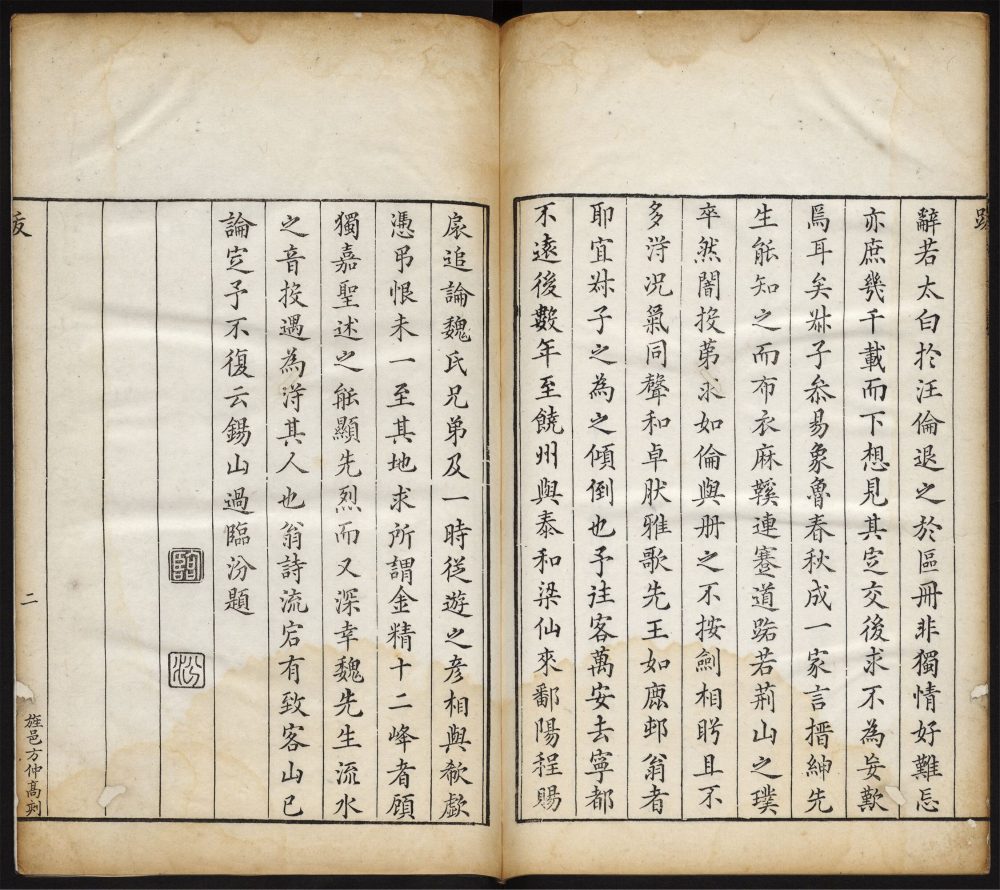 辭若太白扵汪倫退之於區冊非獨情好難忘
亦庶幾千載而下想見其㝎交後求不為妄歎
焉耳矣𡭗子叅易象魯春秋成一家言搢紳先
生能知之而布衣麻鞵連蹇道踣若荊山之璞
卒然闇投苐求如倫與册之不按劍相眄且不
多淂况氣同聲和卓肰雅歌先王如鹿邨翁者
耶宜𡭗子之為之傾倒也予往客萬安去寧都
不遠後數年至饒州與泰和梁仙來鄱陽程賜
扆追論魏氏兄弟及一時從遊之彥相與欷歔
憑弔恨未一至其地求所謂金精十二峰者顧
獨嘉聖述之能顯先烈而又深幸魏先生流水
之音投遇為淂其人也翁詩流宕有致客山已
論㝎予不復云錫山過臨汾題
二
旌邑方仲髙刻